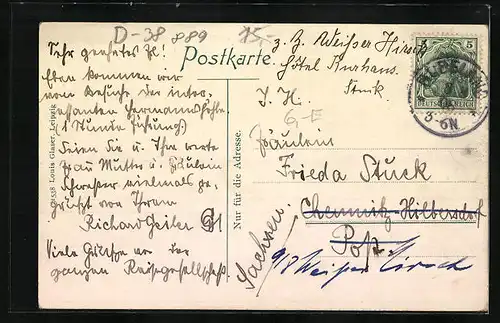 D-38 889
15,-
Postkarte.
z. Z. Weißer Hirsch
Hôtel Kurhaus.
I. H.
G-E
Fräulein
Frieda Stuck
Chemnitz-Hilbersdorf
Post
Sachsen.
Weißer Hirsch
Sehr geehrtes Fr!
Eben kommen wir
vom Besuche der inter-
essanten Hermannshöhle
(1 Stunte Führung)
Seien Sie u. Ihre werte
Frau Mutter u. Fräulein
Schwester vielmals ge-
grüßt von Ihrem
Richard Geiler
Viele Grüße an die
ganzen Reisegesellschaft
Louis Glaser, Leipzig
Nur für die Adresse.
5 5
DEUTSCHES REICH
5-6N